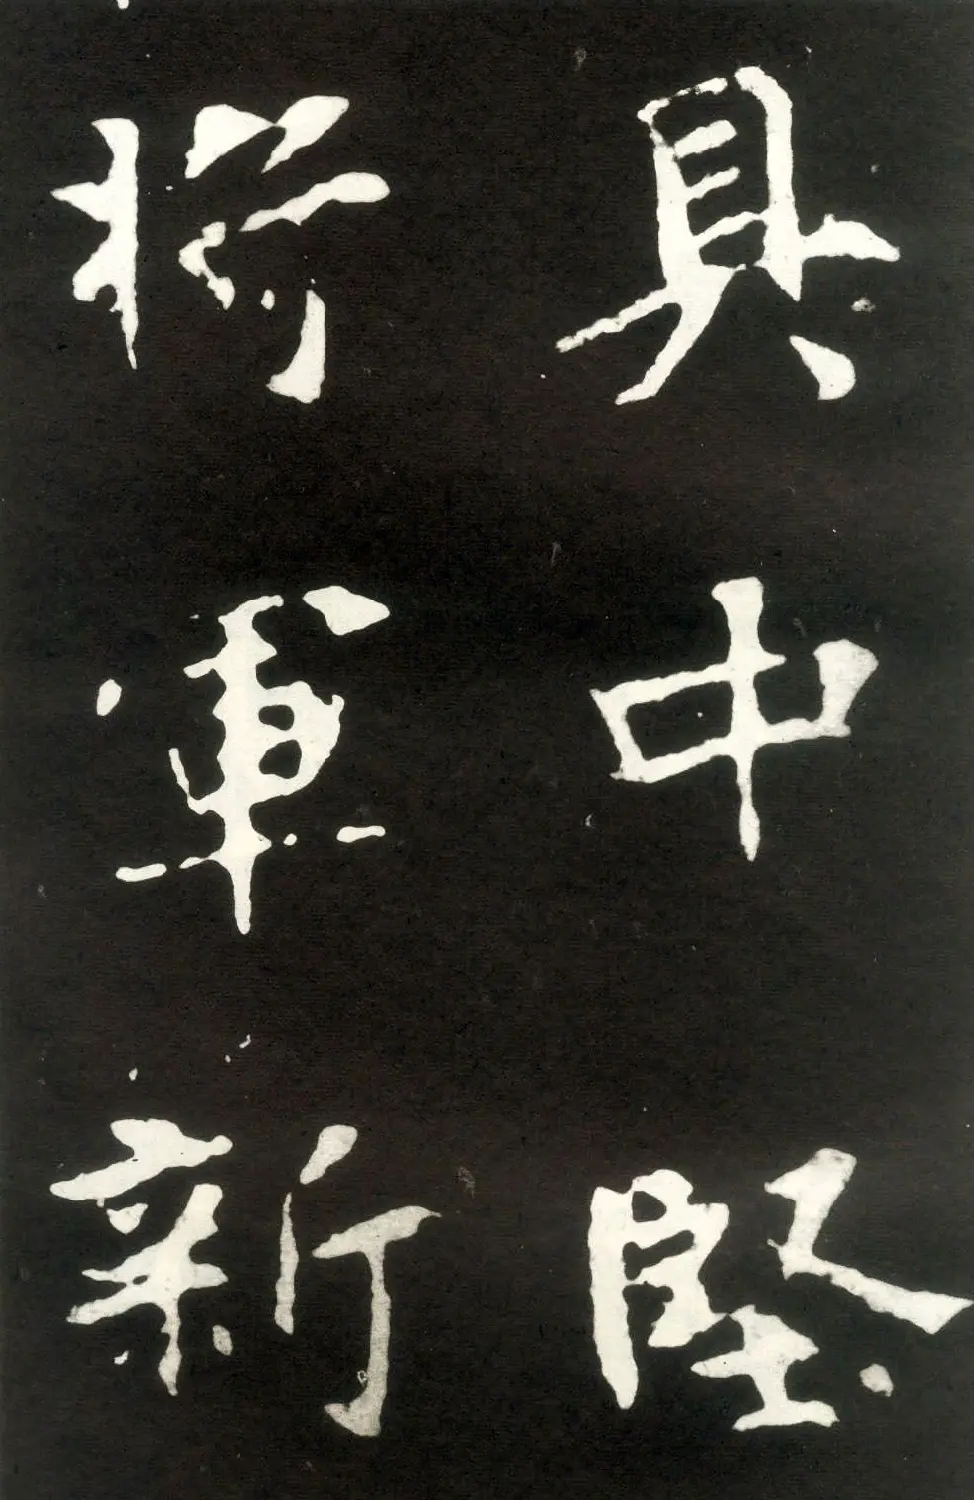 具中堅
將軍新